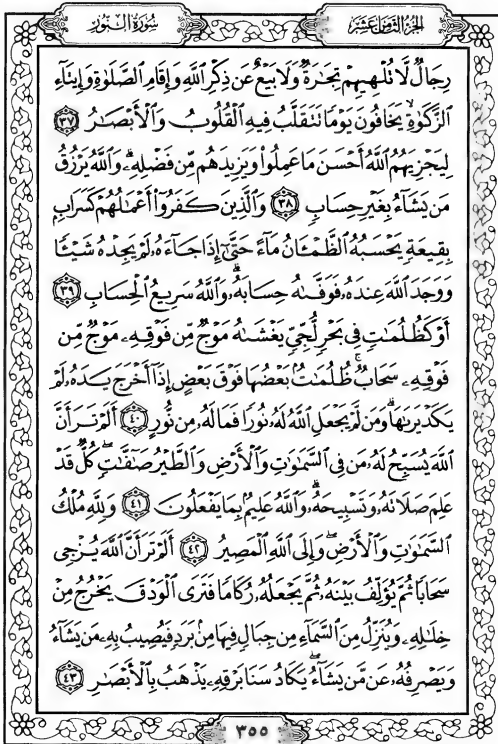 سُورَةُ النُّور
الجزء الثامن عشر
رِجَالٌ لَّا تُلْهِيهِمْ تِجَٰرَةٌ وَلَا بَيْعٌ عَن ذِكْرِ ٱللَّهِ وَإِقَامِ ٱلصَّلَوٰةِ وَإِيتَآءِ
ٱلزَّكَوٰةِ يَخَافُونَ يَوْمًا تَتَقَلَّبُ فِيهِ ٱلْقُلُوبُ وَٱلْأَبْصَٰرُ ٣٧
لِيَجْزِيَهُمُ ٱللَّهُ أَحْسَنَ مَا عَمِلُوا۟ وَيَزِيدَهُم مِّن فَضْلِهِۦ وَٱللَّهُ يَرْزُقُ
مَن يَشَآءُ بِغَيْرِ حِسَابٍ ٣٨ وَٱلَّذِينَ كَفَرُوٓا۟ أَعْمَٰلُهُمْ كَسَرَابٍۭ
بِقِيعَةٍ يَحْسَبُهُ ٱلظَّمْـَٔانُ مَآءً حَتَّىٰٓ إِذَا جَآءَهُۥ لَمْ يَجِدْهُ شَيْـًٔا
وَوَجَدَ ٱللَّهَ عِندَهُۥ فَوَفَّىٰهُ حِسَابَهُۥ وَٱللَّهُ سَرِيعُ ٱلْحِسَابِ ٣٩
أَوْ كَظُلُمَٰتٍ فِى بَحْرٍ لُّجِّىٍّ يَغْشَىٰهُ مَوْجٌ مِّن فَوْقِهِۦ مَوْجٌ مِّن
فَوْقِهِۦ سَحَابٌ ظُلُمَٰتٌۢ بَعْضُهَا فَوْقَ بَعْضٍ إِذَآ أَخْرَجَ يَدَهُۥ لَمْ
يَكَدْ يَرَىٰهَا وَمَن لَّمْ يَجْعَلِ ٱللَّهُ لَهُۥ نُورًا فَمَا لَهُۥ مِن نُّورٍ ٤٠ أَلَمْ تَرَ أَنَّ
ٱللَّهَ يُسَبِّحُ لَهُۥ مَن فِى ٱلسَّمَٰوَٰتِ وَٱلْأَرْضِ وَٱلطَّيْرُ صَٰٓفَّٰتٍ كُلٌّ قَدْ
عَلِمَ صَلَاتَهُۥ وَتَسْبِيحَهُۥ وَٱللَّهُ عَلِيمٌۢ بِمَا يَفْعَلُونَ ٤١ وَلِلَّهِ مُلْكُ
ٱلسَّمَٰوَٰتِ وَٱلْأَرْضِ وَإِلَى ٱللَّهِ ٱلْمَصِيرُ ٤٢ أَلَمْ تَرَ أَنَّ ٱللَّهَ يُزْجِى
سَحَابًا ثُمَّ يُؤَلِّفُ بَيْنَهُۥ ثُمَّ يَجْعَلُهُۥ رُكَامًا فَتَرَى ٱلْوَدْقَ يَخْرُجُ مِنْ
خِلَٰلِهِۦ وَيُنَزِّلُ مِنَ ٱلسَّمَآءِ مِن جِبَالٍ فِيهَا مِنۢ بَرَدٍ فَيُصِيبُ بِهِۦ مَن يَشَآءُ
وَيَصْرِفُهُۥ عَن مَّن يَشَآءُ يَكَادُ سَنَا بَرْقِهِۦ يَذْهَبُ بِٱلْأَبْصَٰرِ ٤٣
٣٥٥